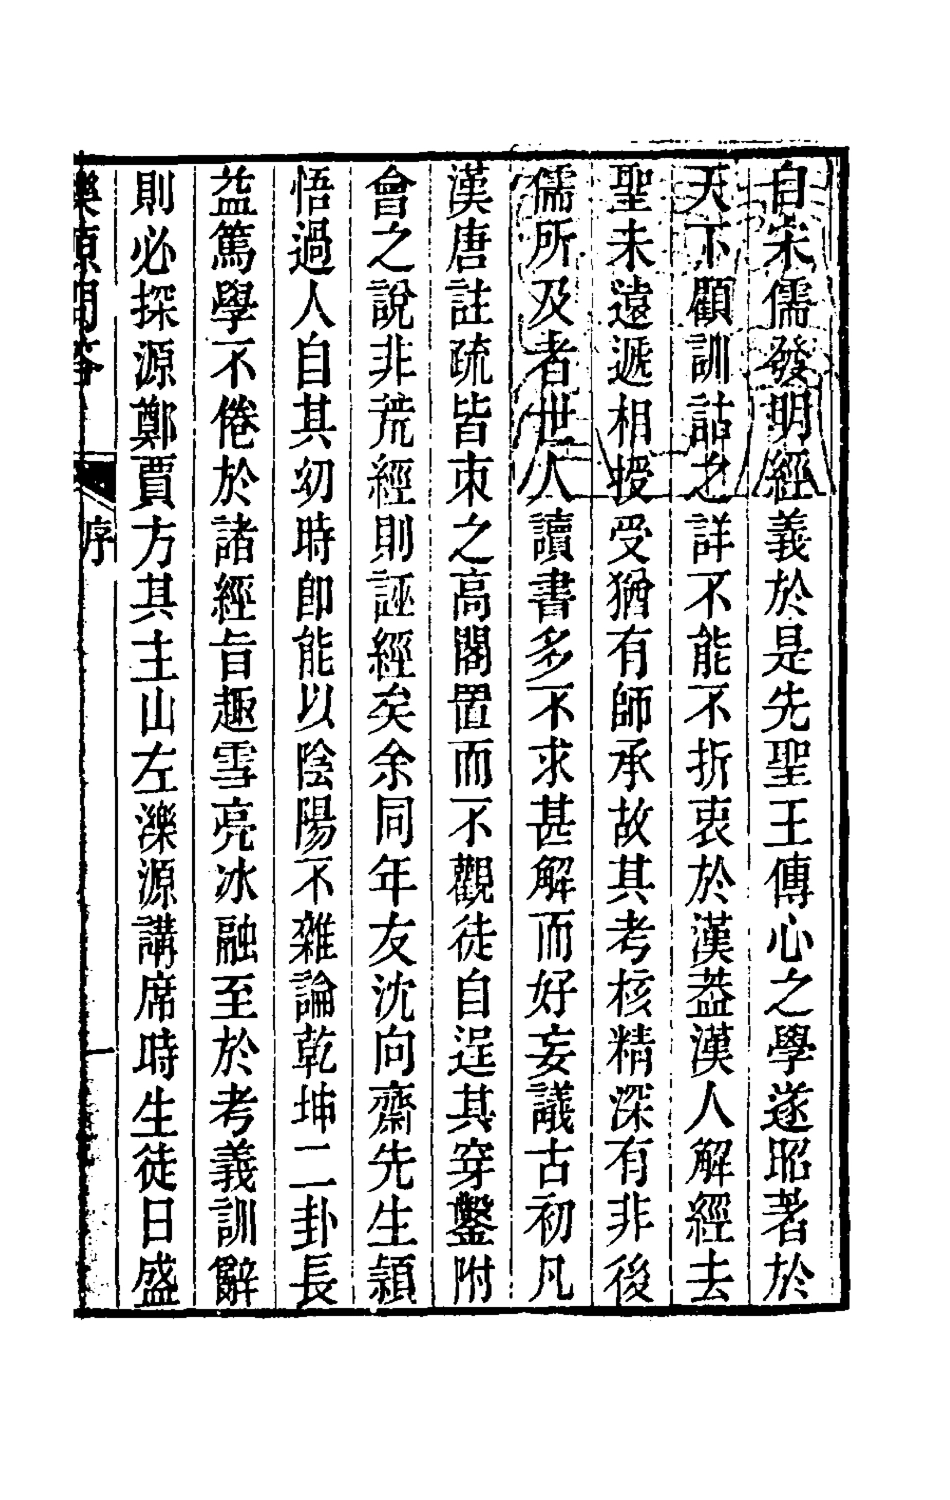 自宋儒發明經義於是先聖王傳心之學遂昭著於
天下顧訓詁之詳不能不折衷於漢葢漢人解經去
聖未遠遞相授受猶有師承故其考核精深有非後
儒所及者世人讀書多不求甚解而好妄議古初凡
漢唐註疏皆束之高閣置而不觀徒自逞其穿鑿附
會之說非荒經則誣經矣余同年友沈向齋先生穎
悟過人自其幼時卽能以陰陽不雜論乾坤二卦長
益篤學不倦於諸經旨趣雪亮冰融至於考義訓辭
則必探源鄭賈方其主山左濼源講席時生徒日盛
濼源問答 序 一